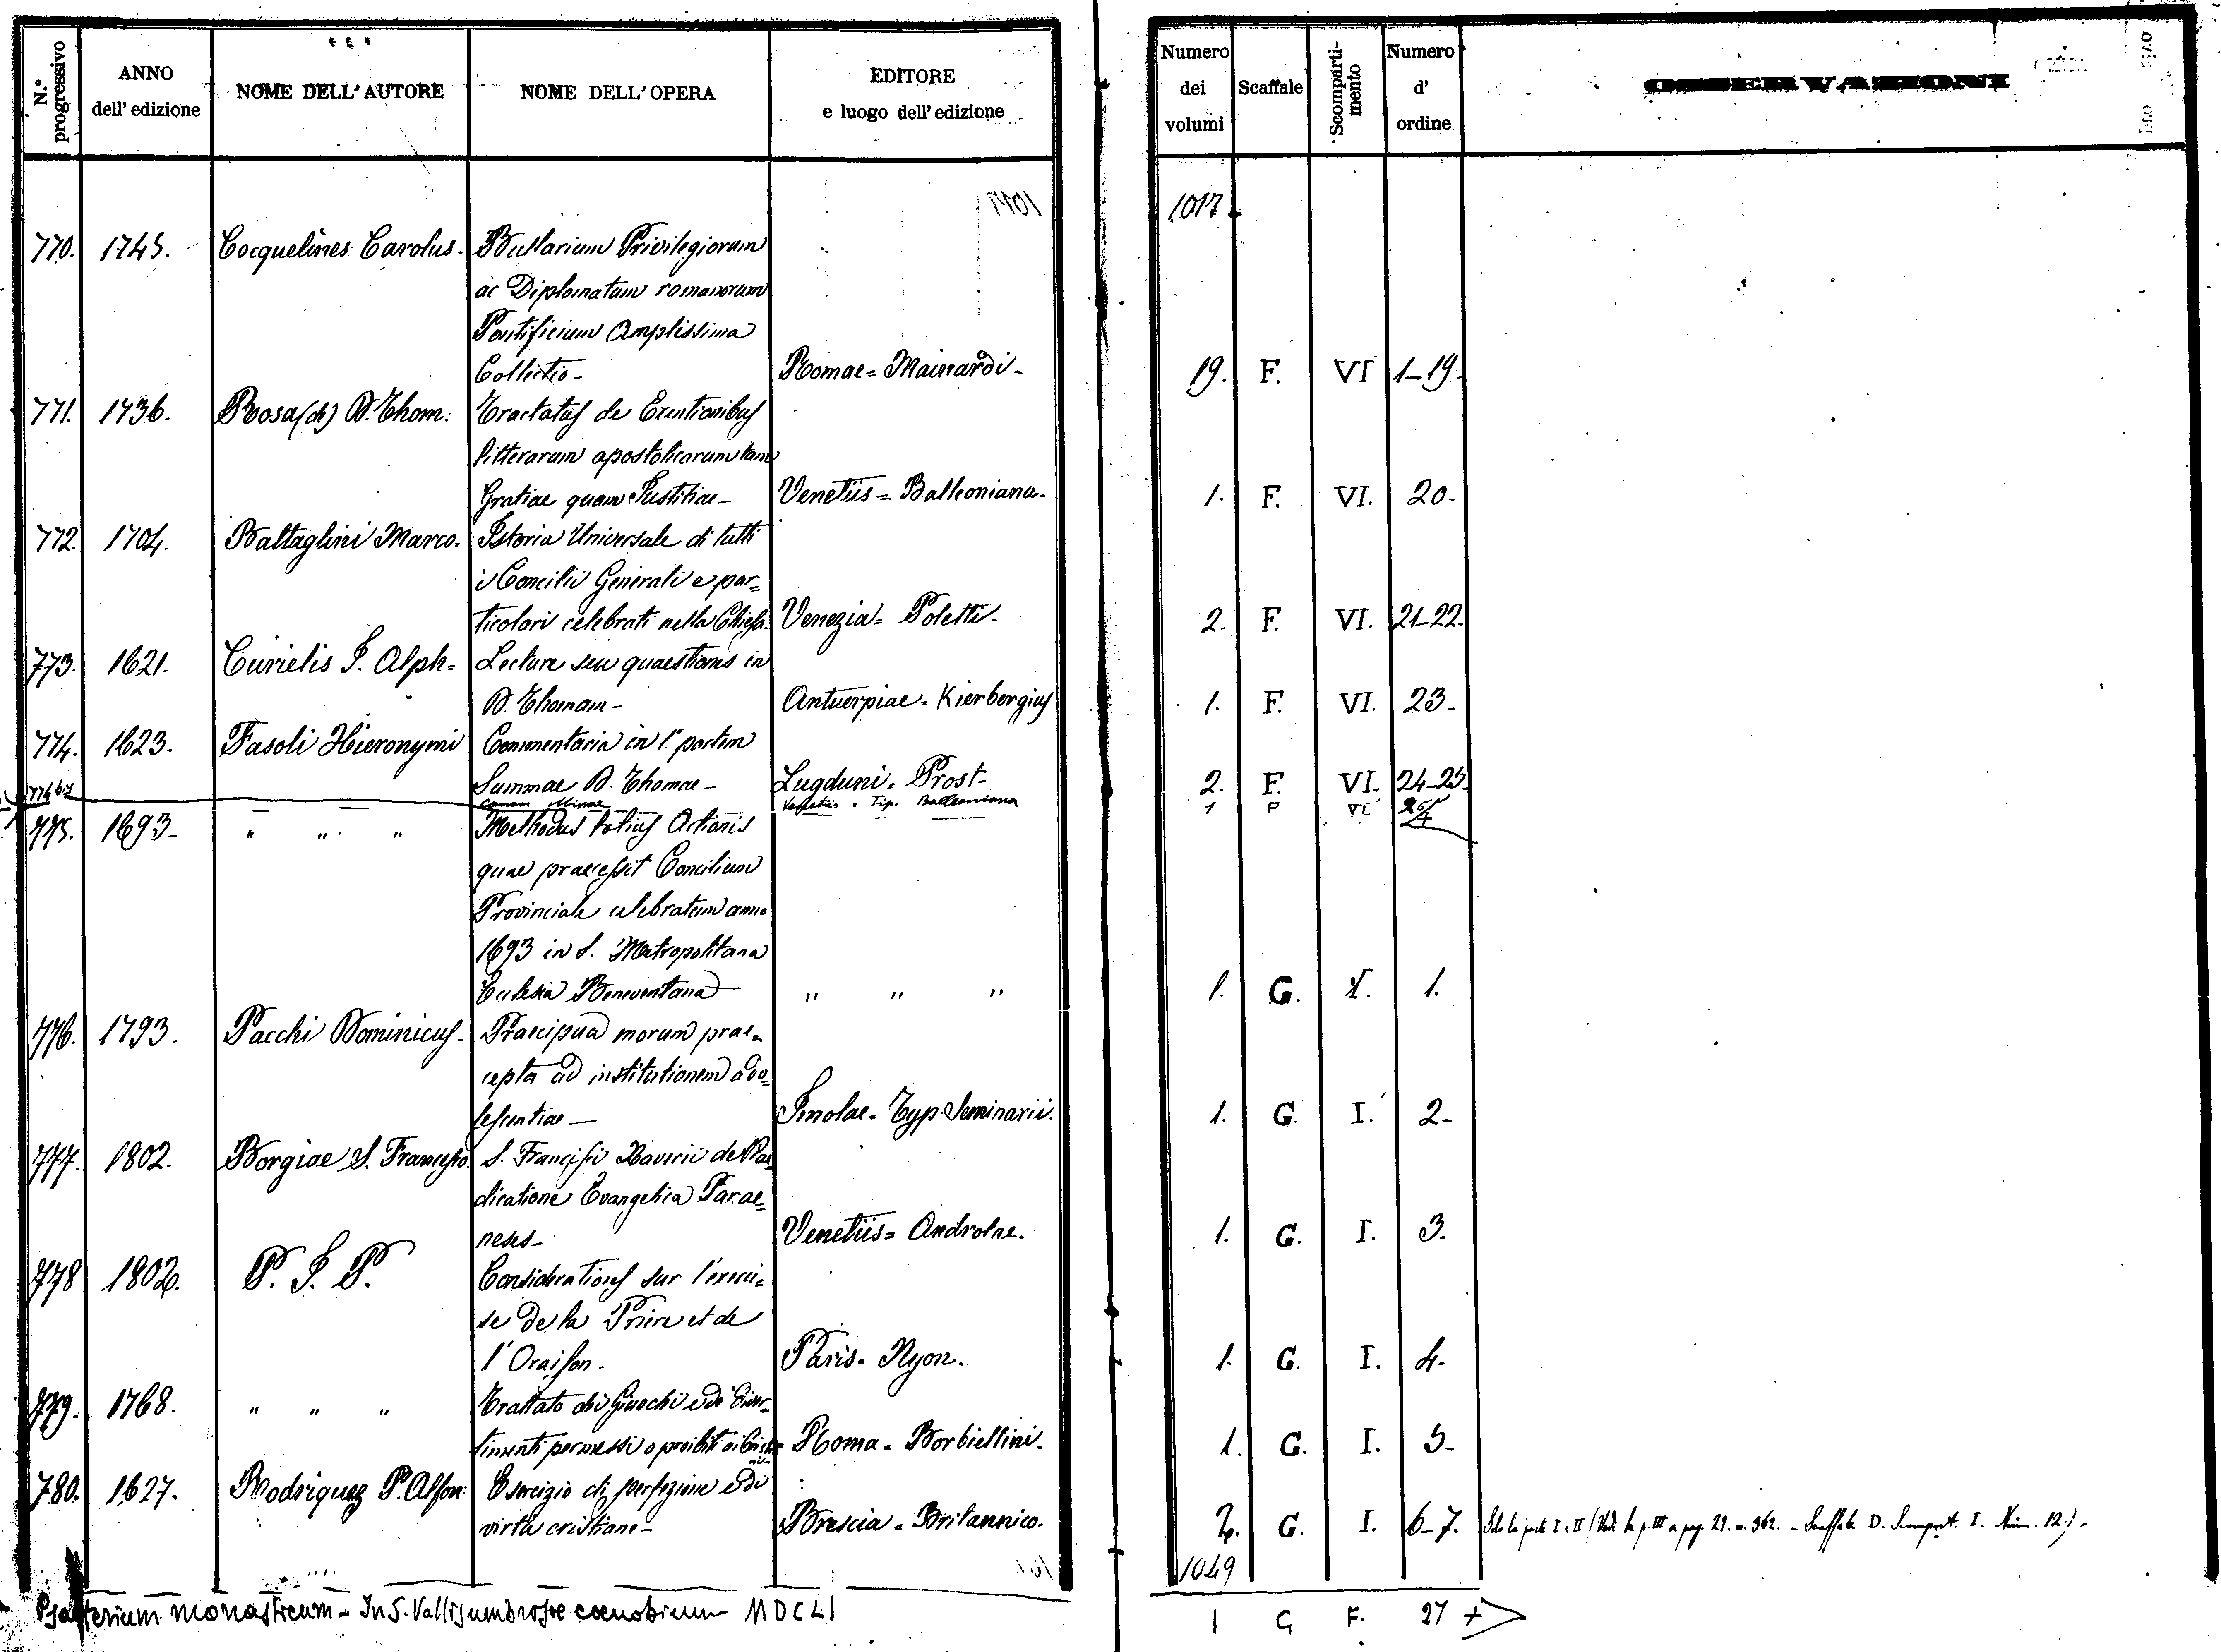 N.° progressivo | ANNO dell' edizione | NOME DELL' AUTORE | NOME DELL' OPERA | EDITORE e luogo dell' edizione | Numero dei volumi | Scaffale | Scomparti-mento | Numero d' ordine | OSSERVAZIONI
1017
770. 1745. Cocquelines Carolus. Bullarium Privilegiorum
ac Diplomatum romanorum
Pontificium Amplissima
Collectio - Romae = Mainardi - 19. F. VI 1-19.
771. 1736. Rosa (de) D. Thom: Tractatus de Exentionibus
litterarum apostolicarum tam
Gratiae quam Justitiae - Venetiis = Balleoniana. 1. F. VI. 20.
772. 1704. Battaglini Marco. Istoria Universale di tutti
i Concilii Generali e par=
ticolari celebrati nella Chiesa. Venezia = Poletti. 2. F. VI. 21-22.
773. 1621. Curielis J. Alph= Lecturae seu quaestiones in
D. Thomam - Antuerpiae = Kierbergius 1. F. VI. 23.
774. 1623. Fasoli Hieronymi Commentaria in 1. partem
Summae D. Thomae - Lugduni = Prost - 2. F. VI. 24-25
774 bis Canon Missae Venetiis = Tip. Balleoniana 1 F VI 26
775. 1693 - " " " Methodus totius Actionis
quae praecessit Concilium
Provinciale celebratum anno
1693 in S. Metropolitana
Eclesia Beneventana - " " " 1. G. I. 1.
776. 1793. Pacchi Dominicus. Praecipua morum prae=
cepta ad institutionem ado=
lescentiae - Imolae = Typ. Seminarii. 1. G. I. 2.
777. 1802. Borgiae S. Francesco. S. Francisci Xaverii de Prae
dicatione Evangelica Parae=
neses - Venetiis = Androlae. 1. G. I. 3.
778 1802. P. J. P. Considerations sur l'exerci=
se de la Priere et de
l'Oraison - Paris = Nyon. 1. G. I. 4.
779. 1768. " " " Trattato dei Giuochi e di Diver=
timenti permessi o proibiti ai Cristia=
ni - Roma = Borbiellini. 1. G. I. 5.
780. 1627. Rodriquez P. Alfon: Esercizio di perfezione e di
virtù cristiane - Brescia = Britannico. 2. G. I. 6-7. Solo la parte I e II (Vedi la p. III a pag. 29. n. 362. - Scaffale D. Scompart. I. Num. 12.) -
1049
Psalterium monasticum - In S. Vallisumbrosae coenobium MDCLI 1 G F. 27 +